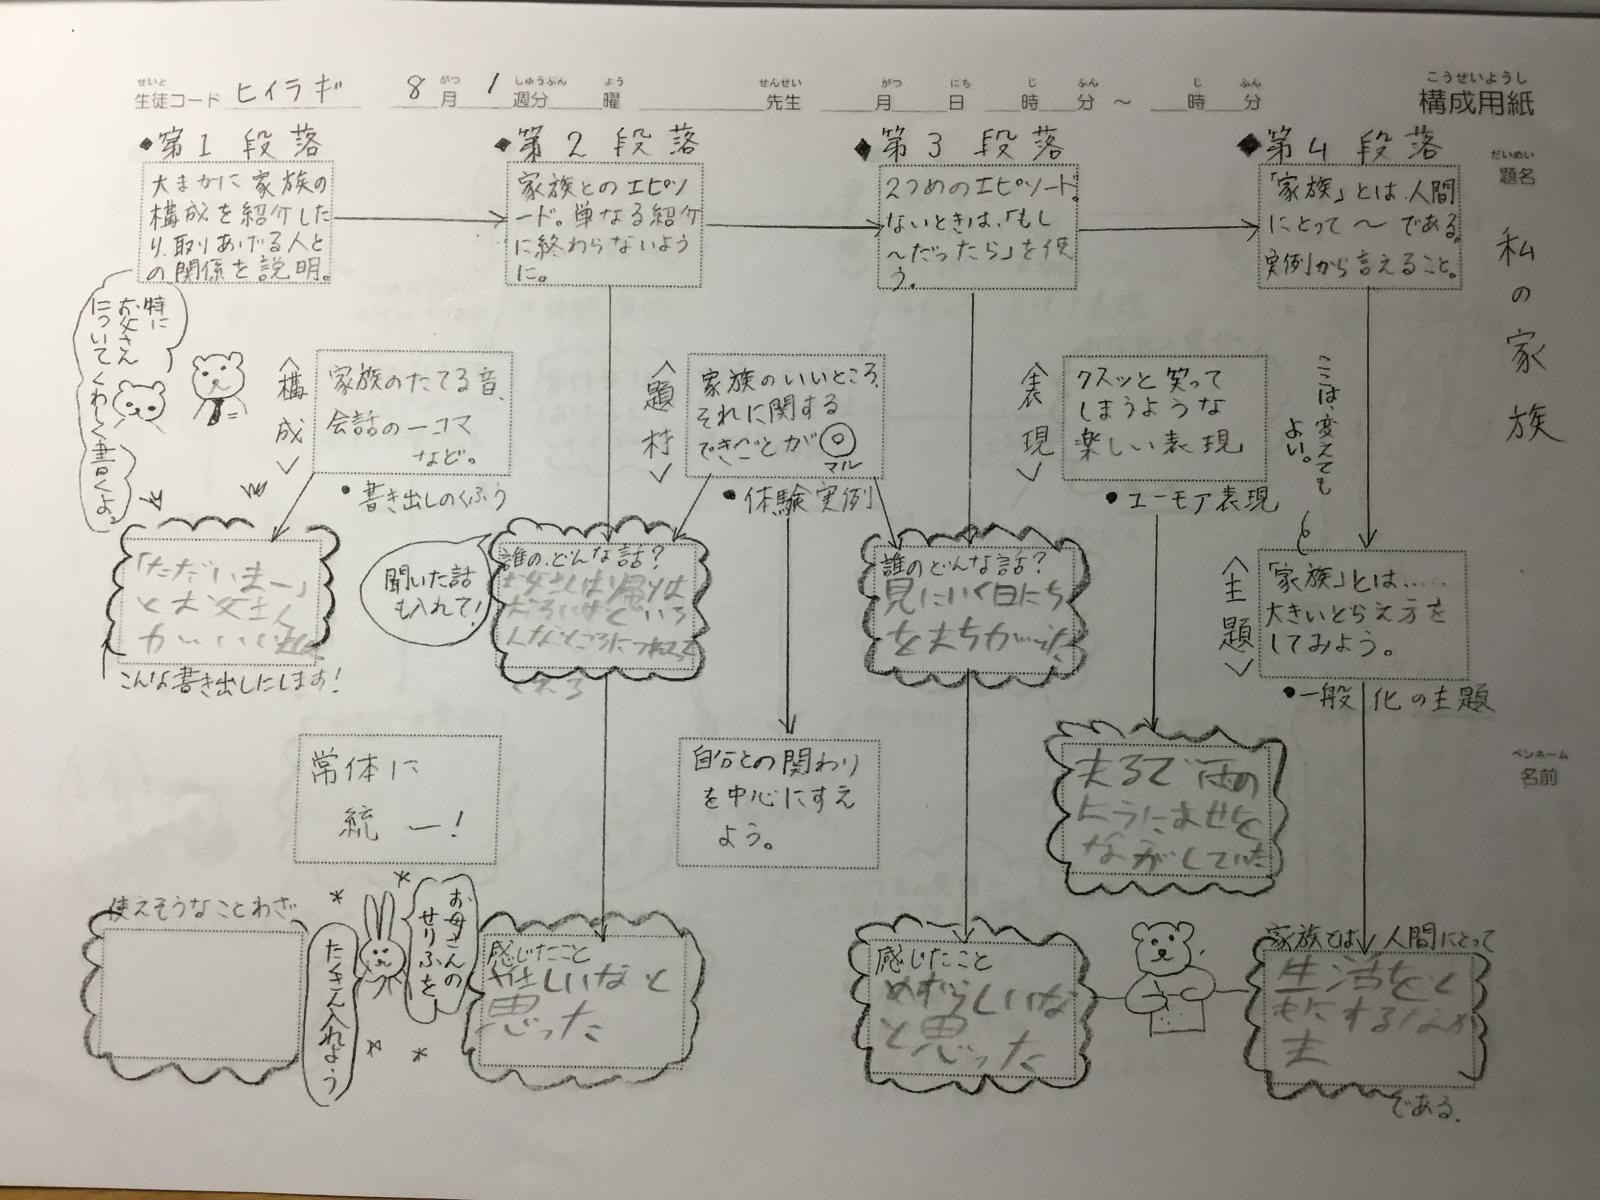 せいと
生徒コード ヒイラギ 8月 1週分 曜 先生 月 日 時 分 ～ 時 分
がつ しゅうぶん よう せんせい がつ にち じ ふん じ ふん
こうせいようし
構成用紙
だいめい
題名
私の家族
ペンネーム
名前
◆第1段落
大まかに家族の
構成を紹介した
り、取りあげる人と
の関係を説明。
特に
お父さん
について
くわしく書くよ。
◆第2段落
家族とのエピソ
ード。単なる紹介
に終わらないよう
に。
◆第3段落
2つめのエピソード。
ないときは、「もし
～だったら」を使
う。
◆第4段落
「家族」とは、人間
にとって～である。
実例から言えること。
〈構成〉
家族のたてる音、
会話の一コマ
など。
●書き出しのくふう
〈題材〉
家族のいいところ、
それに関する
できごとが◎
マル
●体験実例
〈表現〉
クスッと笑って
しまうような
楽しい表現
●ユーモア表現
ここは、変えても
よい。
〈主題〉
「家族」とは……
大きいとらえ方を
してみよう。
●一般化の主題
「ただいまー」
とお父さん
がいい
こんな書き出しにします！
聞いた話
も入れて！
誰の、どんな話？
お父さんは帰りは
おそいけどいろ
んなところにつれてって
くれる
誰のどんな話？
見にいく日にち
をまちがえた
常体に
統一！
自分との関わり
を中心にすえ
よう。
まるで雨の
ようにあせを
ながしていた
使えそうなことわざ
お母さんの
せりふを
たくさん入れよう
感じたこと
やさしいなと
思った
感じたこと
めずらしいな
と思った
家族とは、人間にとって
生活をと
もにするなか
ま
である。